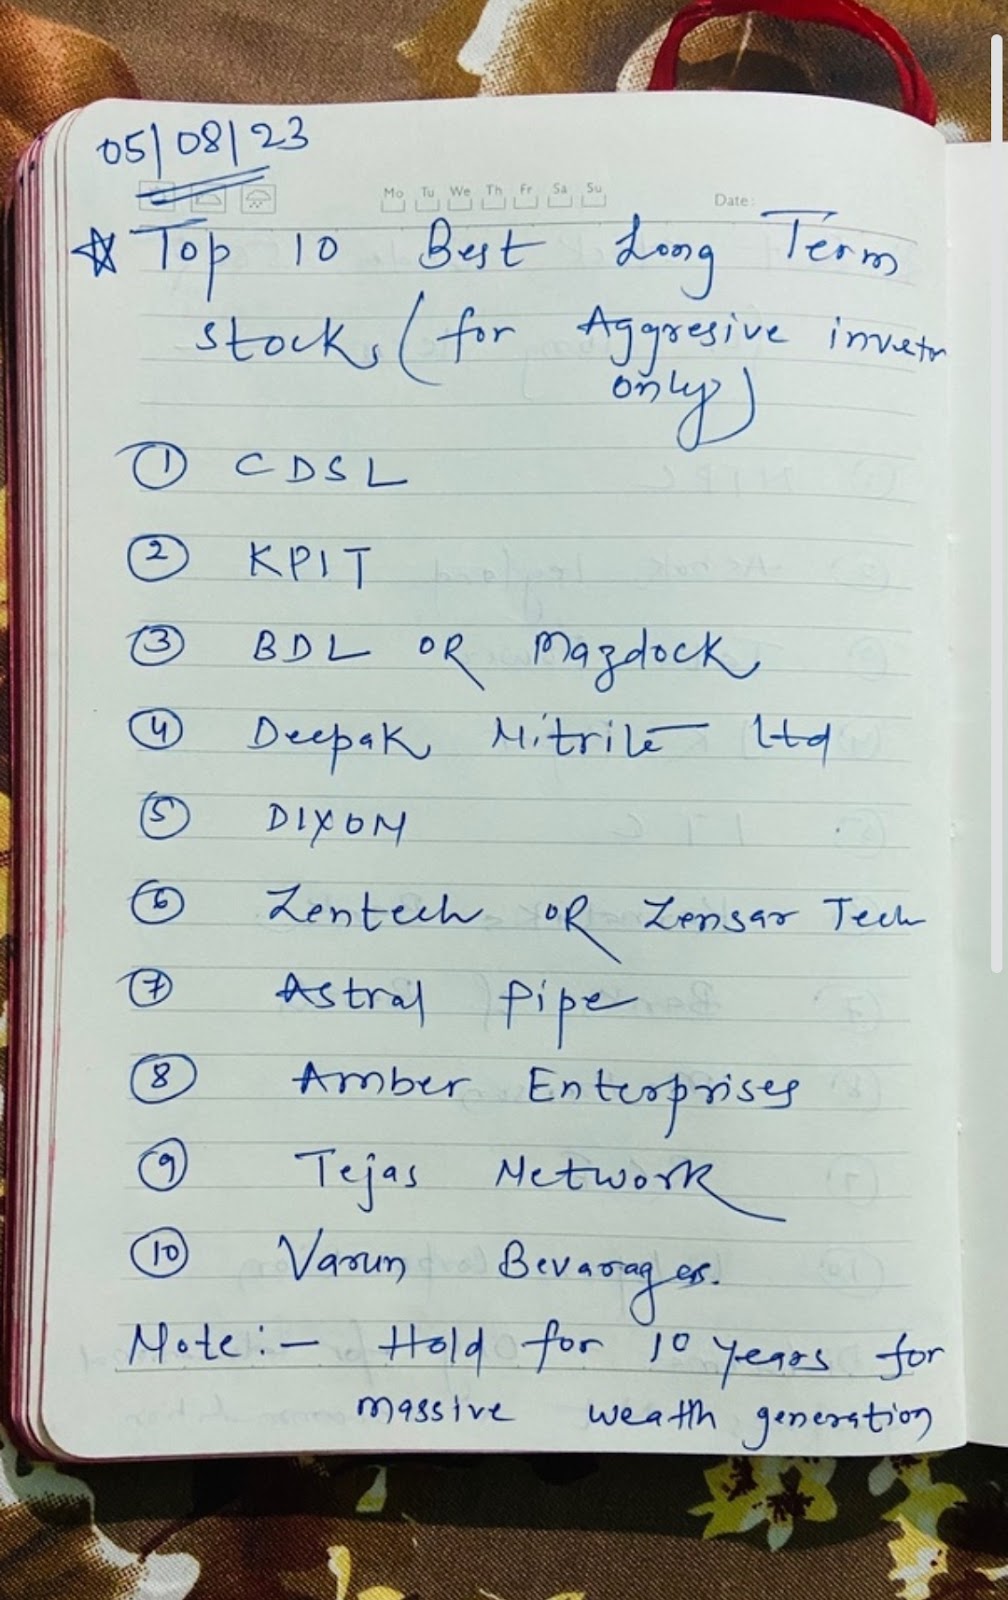 05/08/23
Mo Tu We Th Fr Sa Su Date:
☆ Top 10 Best Long Term
stocks (for Aggresive invetor
only)
① CDSL
② KPIT
③ BDL OR Mazdock
④ Deepak Nitrile Ltd
⑤ DIXON
⑥ Zentech OR Zensar Tech
⑦ Astral Pipe
⑧ Amber Enterprises
⑨ Tejas Network
⑩ Varun Bevarages.
Note:- Hold for 10 years for
massive wealth generation